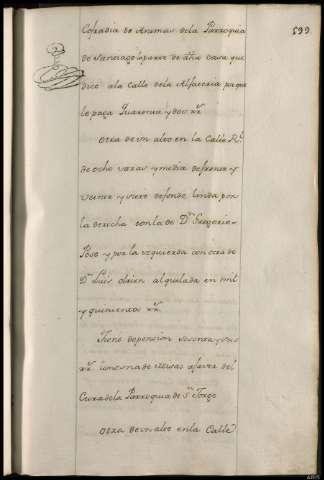 599
Cofradia de Animas dela Parroquia
de Santiago la parte de dha casa que
dice ala Calle dela Alfareria porque
le paga Quarenta y dos rr.
Otra de un alto en la Calle Rl.
de ocho varas y media de frente y
veinte y siete defondo linda por
la derecha con la de Dn. Gregorio
Poso y por la izquierda con otra de
Dn. Luis alquilada en mil
y quinientos rr.
Tiene depension sesenta y seis
rr. limosna de Misas afavor del
Cura dela Parroquia de Sn. Jorge
Otra de un alto en la Calle